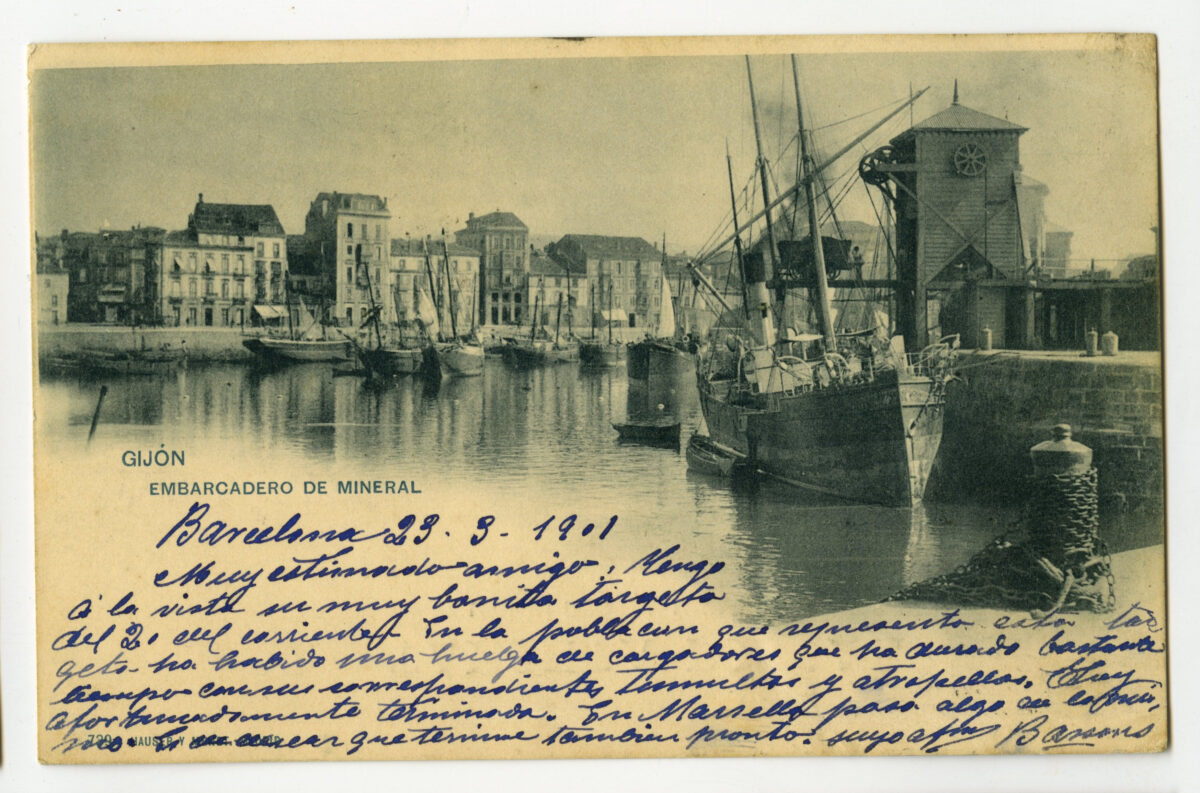 GIJÓN
EMBARCADERO DE MINERAL
Barcelona 23.3.1901
Muy estimado amigo: Tengo
á la vista su muy bonita targeta
del 20 del corriente. En la poblacion que represento esta tar
geta ha habido una huelga de cargadores que ha durado bastante
tiempo con sus correspondientes tumultos y atropellos. Hay
afortunadamente terminada. En Marsella pasa algo de lo mis,
mo es de desear que termine tambien pronto. suyo afmo Barsons
729 HAUSER Y MENET.-MADRID